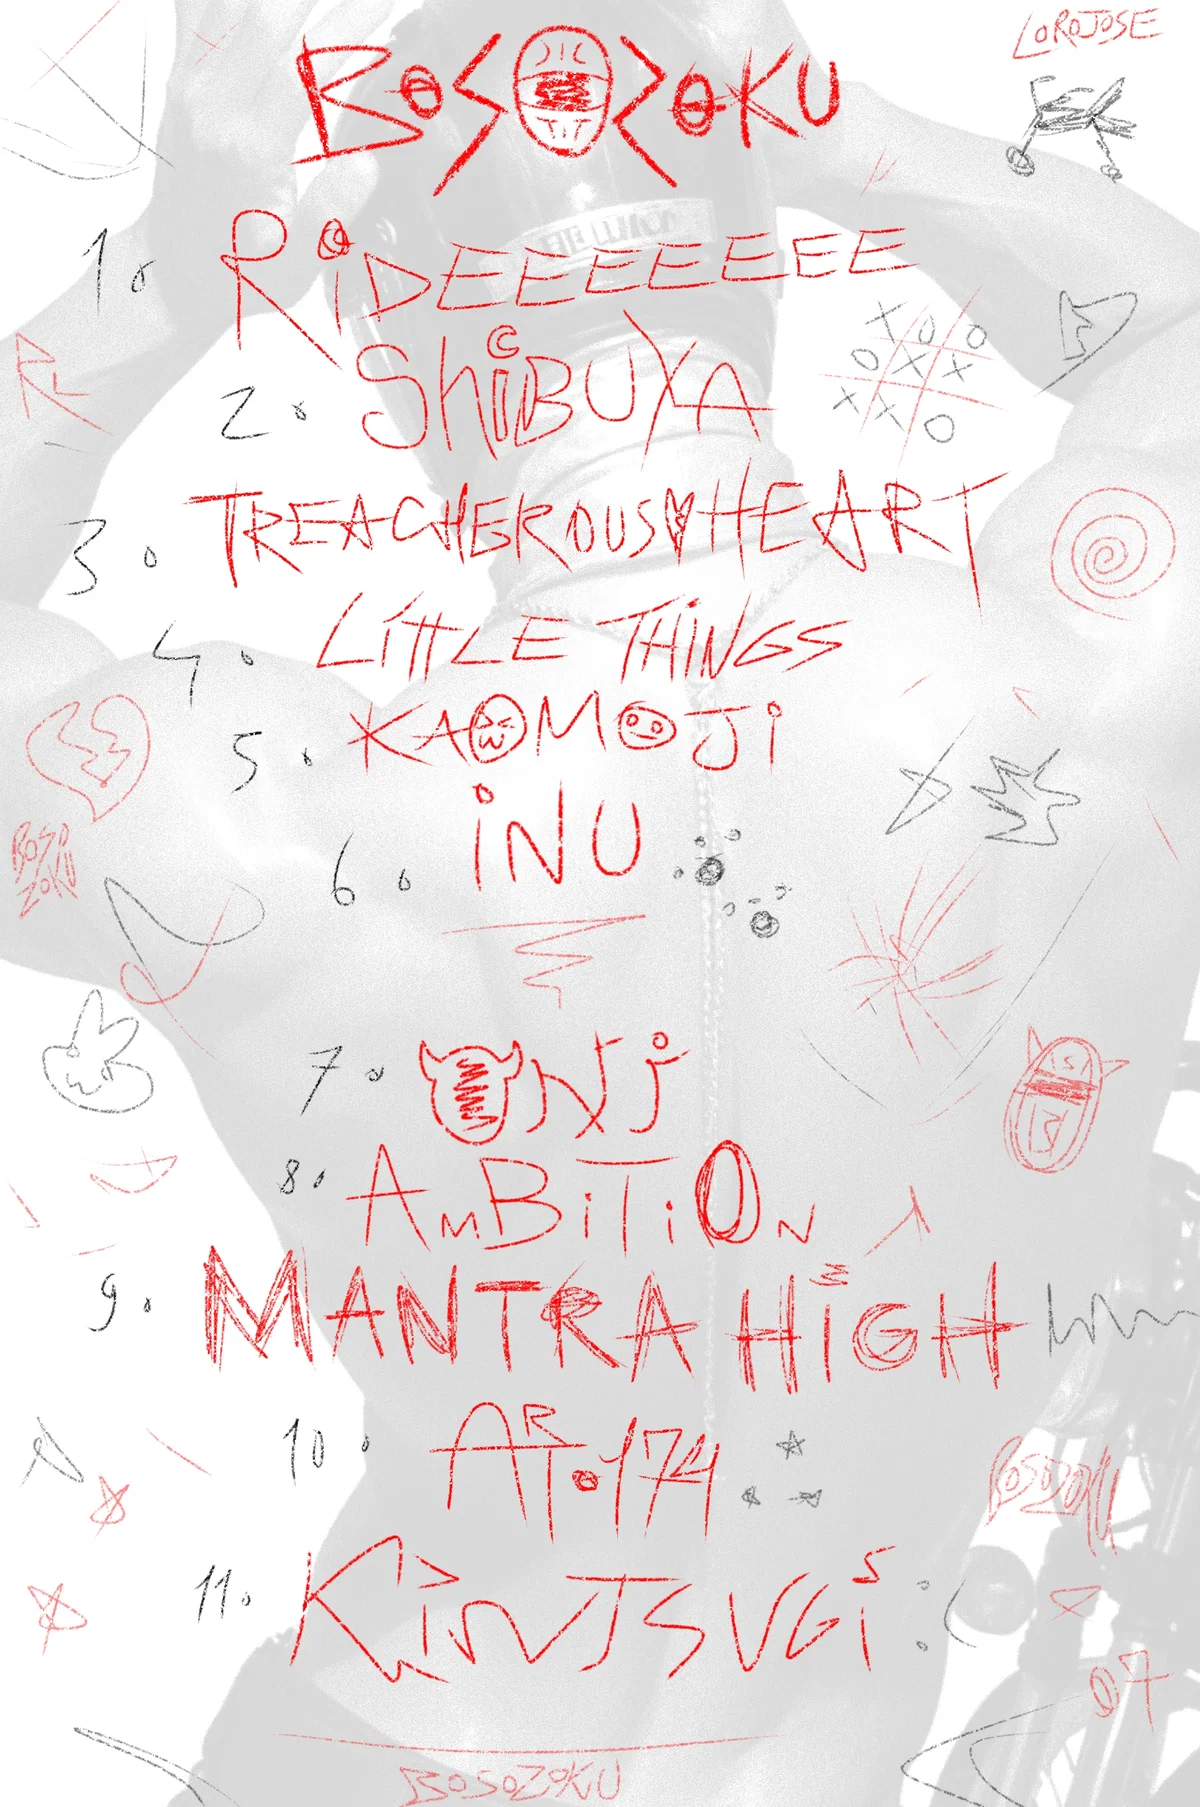 LOROJOSE
BOSOZOKU
1. RIDEEEEEEEE
2. SHIBUYA
3. TREACHEROUS HEART
4. LITTLE THINGS
5. KAOMOJI
BOSO
ZOKU
6. INU
7. ONI
8. AMBITION
9. MANTRA HIGH
10. ART.174
BOSOZOKU
11. KINTSUGI :(
07
BOSOZOKU